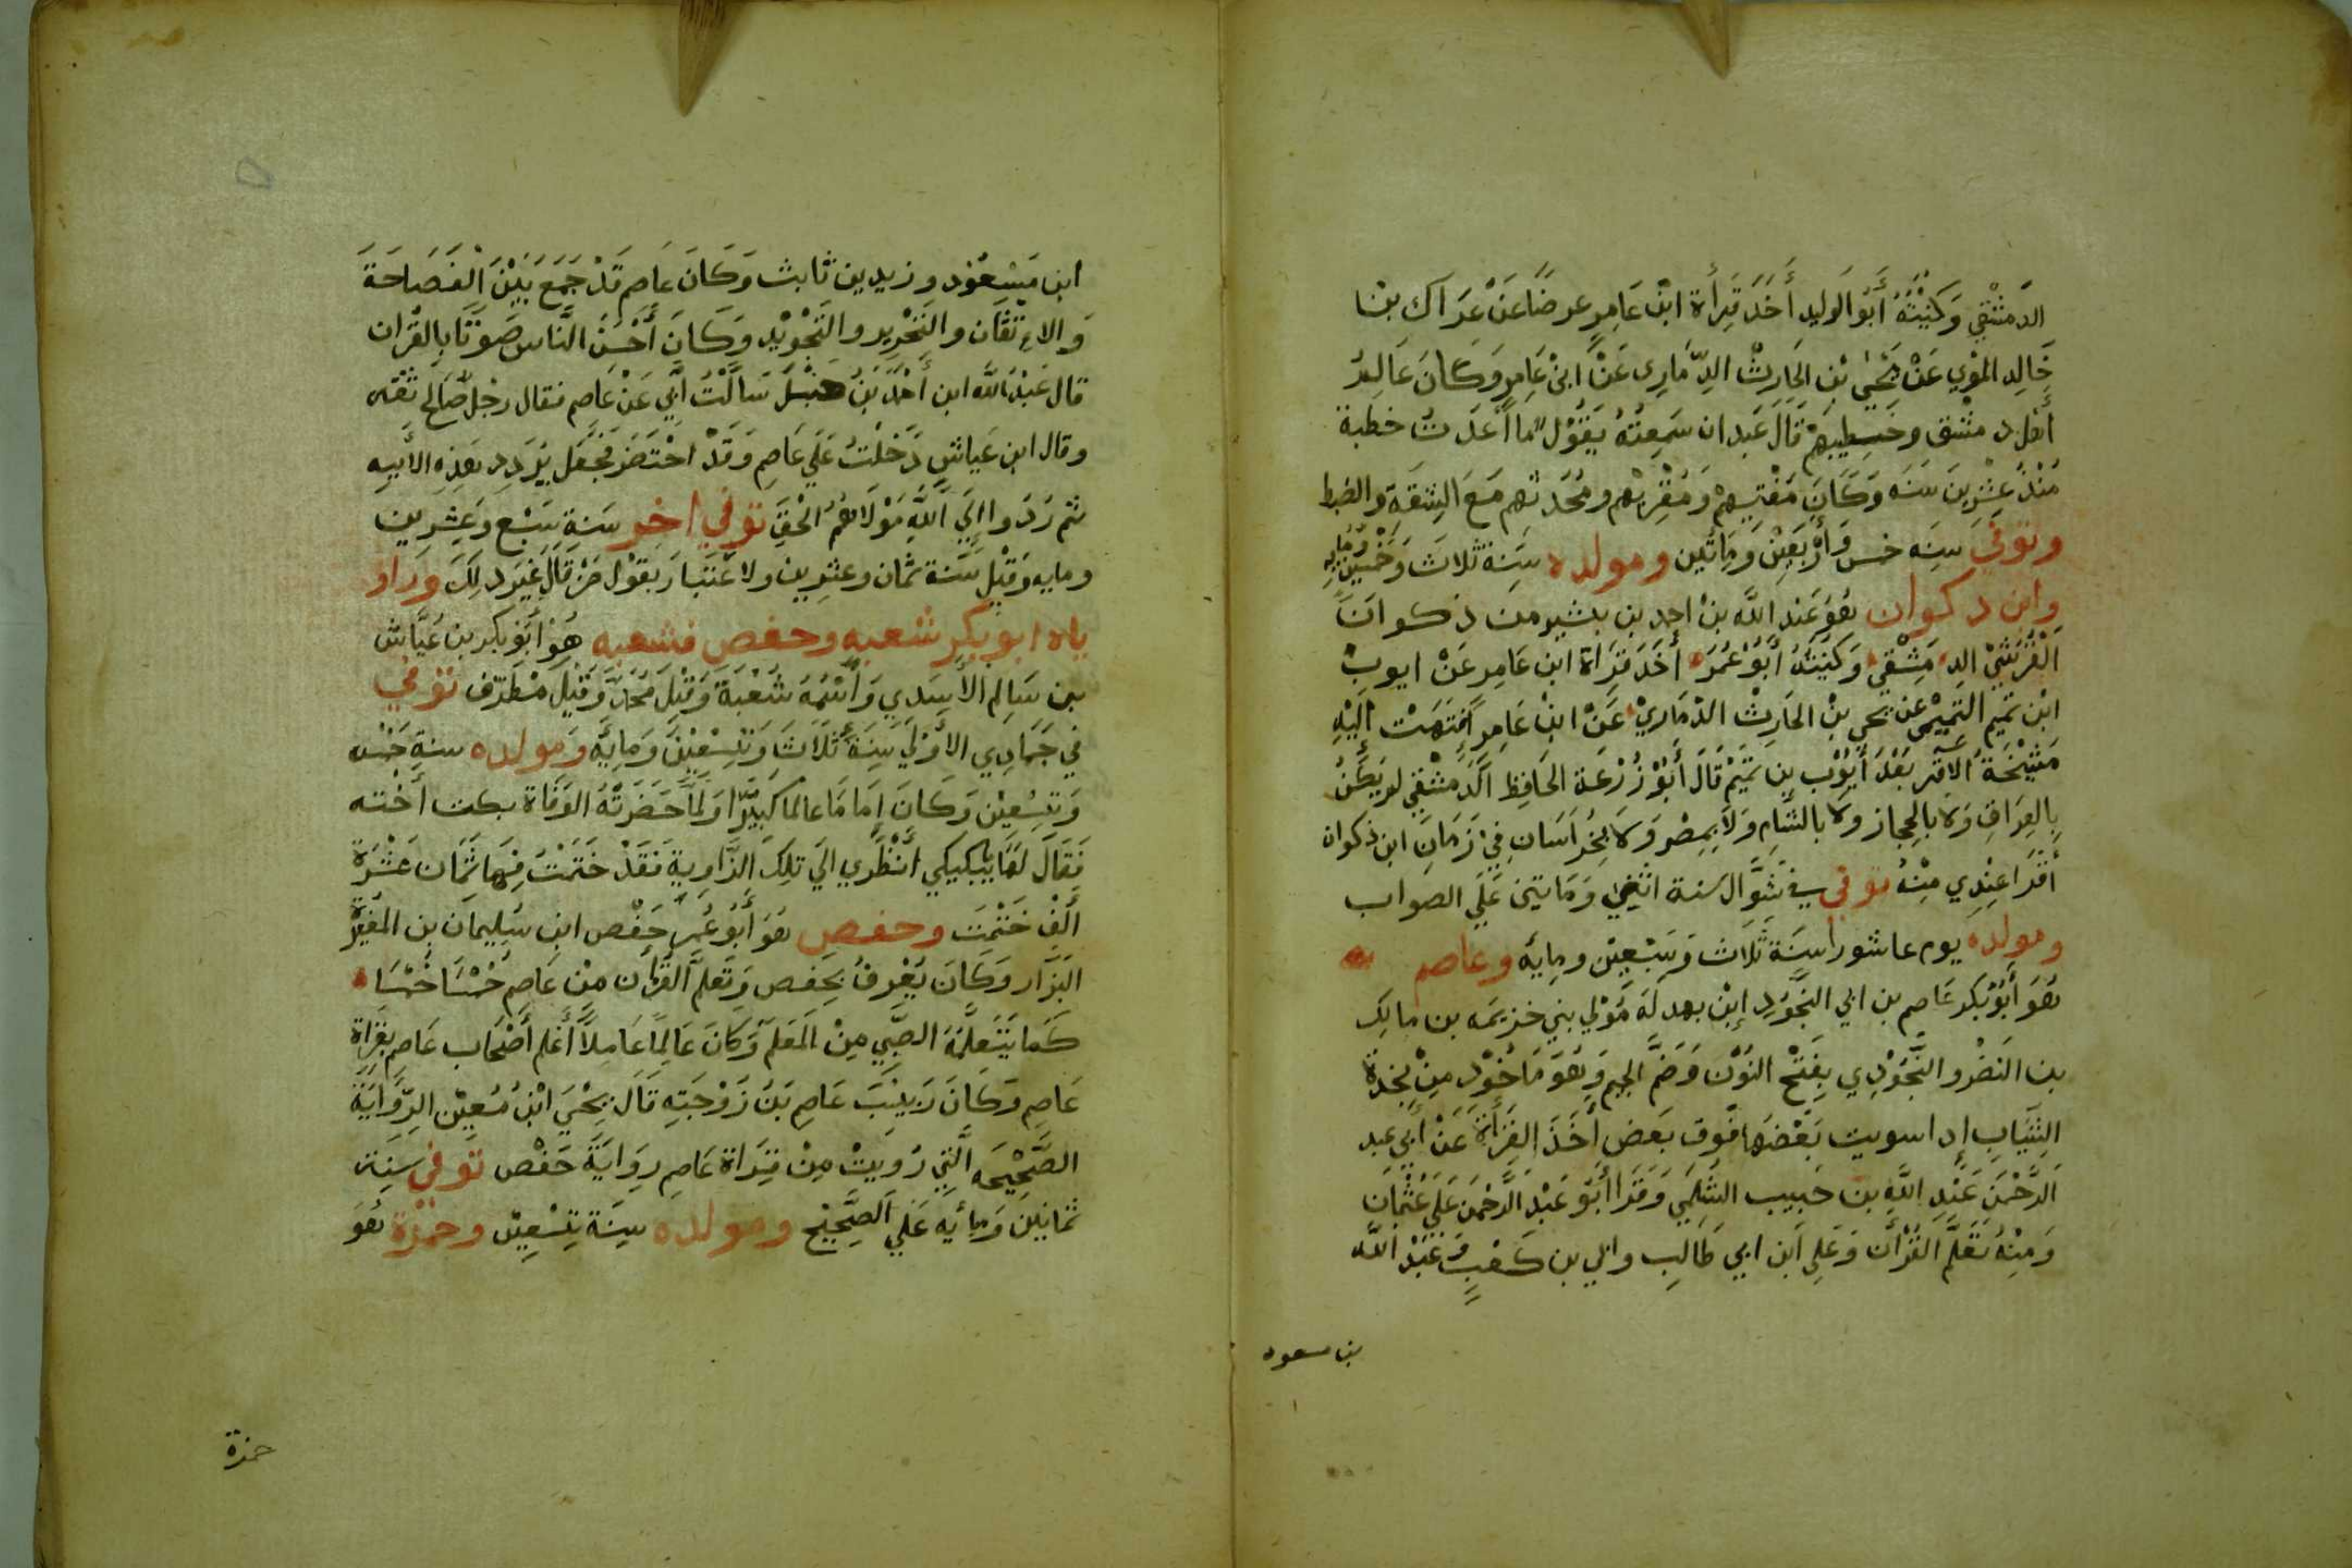 الدمشقي وكنيته أبو الوليد أخذ قرأة ابن عامر عرضا عن عراك بن
خالد المري عن يحيى بن الحارث الدماري عن ابن عامر وكان عالم
أهل دمشق وخطيبهم قال عبدان سمعته يقول ما أعدت خطبة
منذ عشرين سنه وكان مفتيهم ومقريهم ومحدثهم مع الثقة والضبط
وتوفي سنه خمس وأربعين ومائتين ومولده سنة ثلاث وخمسين ومايه
وابن ذكوان هو عبد الله بن احمد بن بشير من ذكوان
القريشي الدمشقي وكنيته أبو عمر أخذ قراة ابن عامر عن ايوب
ابن تميم التميمي عن يحيى بن الحارث الدماري عن ابن عامر انتهت اليه
مشيخة الاقر بعد أيوب بن تميم قال أبو زرعة الحافظ الدمشقي لم يكن
بالعراق ولا بالحجاز ولا بالشام ولا بمصر ولا بخراسان في زمان ابن ذكوان
أقرا عندي منه توفي في شوال سنة اثنين ومايتين علي الصواب
ومولده يوم عاشورا سنة ثلاث وسبعين ومايه وعاصم
هو أبو بكر عاصم بن ابي النجود ابن بهدله مولي بني خزيمه بن مالك
بن النضر والنجودي بفتح النون وضم الجيم وهو ماخود من نجدة
الثياب إدا سويت بعضها فوق بعض أخذ القرأة عن ابي عبد
الرحمن عبد الله بن حبيب السلمي وقرا أبو عبد الرحمن علي عثمان
ومنه تعلم القرأن وعلي ابن ابي طالب وابي بن كعب وعبد الله
بن مسعود
ابن مسعود وزيد بن ثابت وكان عاصم قد جمع بين الفصاحة
والاءتقان والتحرير والتجويد وكان أحسن الناس صوتا بالقران
قال عبد الله ابن أحمد بن حنبل سألت أبي عن عاصم فقال رجل صالح ثقه
وقال ابن عياش دخلت علي عاصم وقد احتضر فجعل يردد هذه الأيه
ثم ردوا إلي الله مولاهم الحق توفي اخر سنة سبع وعشرين
ومايه وقيل سنة ثمان وعشرين ولا عتبار بقول من قال غير دلك وراو
ياه ابو بكر شعبه وحفص فشعبه هو أبو بكر بن عياش
بن سالم الأسدي وأسمه شعبة وقيل محمد وقيل مطرف توفي
في جمادي الأولي سنة ثلاث وتسعين ومايه ومولده سنة خمسه
وتسعين وكان إماما عالما كبيرا ولما حضرته الوفاة بكت أخته
فقال لها يبكيكي أنظري الي تلك الزاوية فقد ختمت فيها ثمان عشرة
ألف ختمت وحفص هو أبو عمر حفص ابن سليمان بن المغيرة
البزار وكان يعرف بحفص وتعلم القرأن من عاصم خمسا خمسا
كما يتعلمه الصبي من المعلم وكان عالما عاملا أعلم أصحاب عاصم بقراة
عاصم وكان ربيب عاصم بن زوجته قال يحيى ابن معين الرواية
الصحيحه التي رويت من قراة عاصم رواية حفص توفي سنة
ثمانين ومأيه علي الصحيح ومولده سنة تسعين وحمزة هو
حمزة